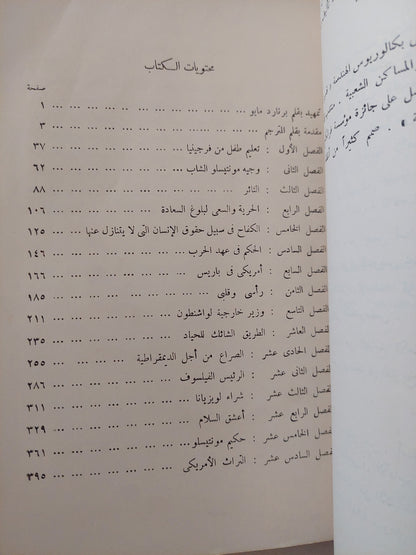 محتويات الكتاب
صفحة
تمهيد بقلم برنارد مايو ... ... ... ... ... ... ... ... ... ١
مقدمة بقلم المترجم ... ... ... ... ... ... ... ... ... ... ٣
الفصل الأول : تعليم طفل من فرجينيا ... ... ... ... ... ... ٣٧
الفصل الثانى : وجيه مونتيسلو الشاب ... ... ... ... ... ... ٦٢
الفصل الثالث : الثائر ... ... ... ... ... ... ... ... ... ٨٨
الفصل الرابع : الحرية والسعى لبلوغ السعادة ... ... ... ... ١٠٦
الفصل الخامس : الكفاح فى سبيل حقوق الإنسان التى لا يتنازل عنها ... ... ١٢٥
الفصل السادس : الحكم فى عهد الحرب ... ... ... ... ... ... ١٤٦
الفصل السابع : أمريكى فى باريس ... ... ... ... ... ... ... ١٦٦
الفصل الثامن : رأسى وقلبى ... ... ... ... ... ... ... ... ١٨٥
الفصل التاسع : وزير خارجية لواشنطون ... ... ... ... ... ... ٢١١
الفصل العاشر : الطريق الشائك للحياد ... ... ... ... ... ... ٢٣٥
الفصل الحادى عشر : الصراع من أجل الديمقراطية ... ... ... ... ٢٥٥
الفصل الثانى عشر : الرئيس الفيلسوف ... ... ... ... ... ... ٢٨٦
الفصل الثالث عشر : شراء لويزيانا ... ... ... ... ... ... ... ٣١١
الفصل الرابع عشر : أعشق السلام ... ... ... ... ... ... ... ٣٢٩
الفصل الخامس عشر : حكيم مونتيسلو ... ... ... ... ... ... ... ٣٦١
الفصل السادس عشر : التراث الأمريكى ... ... ... ... ... ... ٣٩٥
بكالوريوس الهندسة
المساكن الشعبية .
على جائزة مؤسسة
. صمم كثيراً من